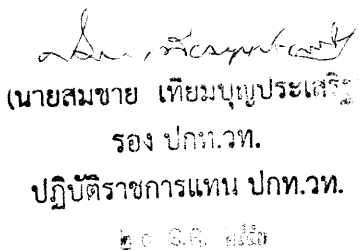 (นายสมชาย เทียมบุญประเสริฐ
รอง ปกท.วท.
ปฏิบัติราชการแทน ปกท.วท.